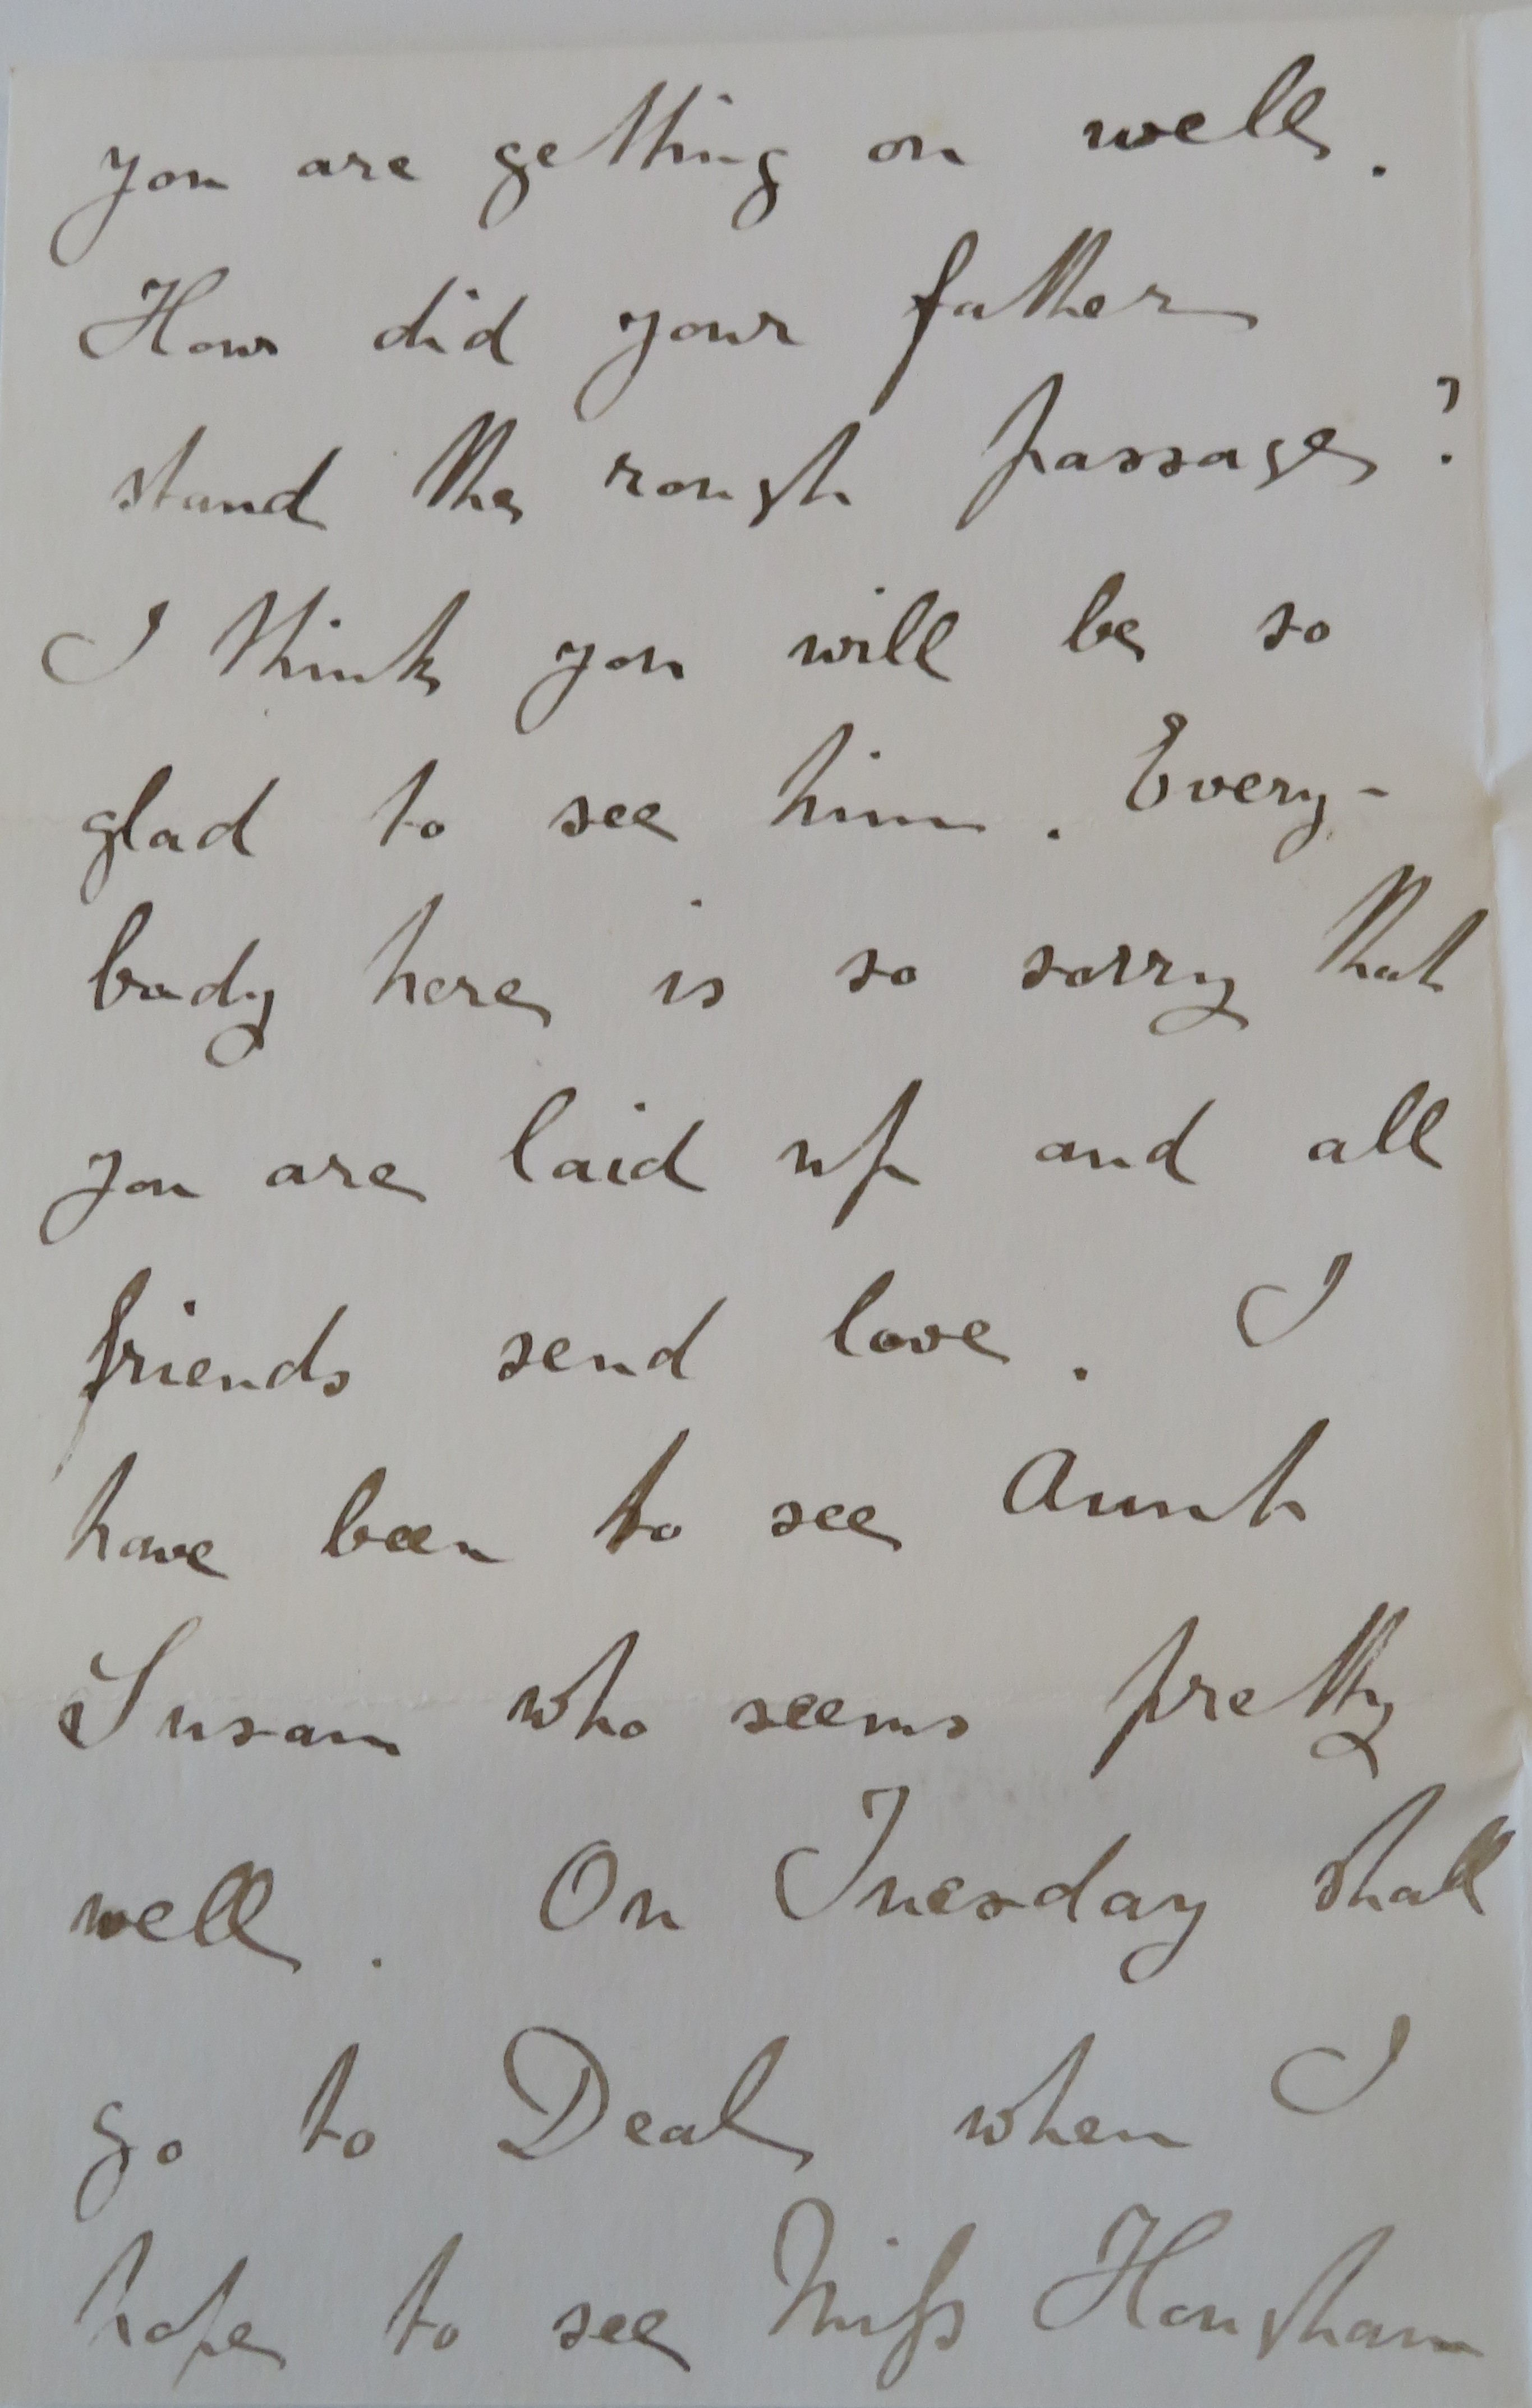 you are getting on well.
How did your father
stand the rough passage?
I think you will be so
glad to see him. Every-
body here is so sorry that
you are laid up and all
friends send love. I
have been to see Aunt
Susan who seems pretty
well. On Tuesday shall
go to Deal when I
hope to see Miss Hougham